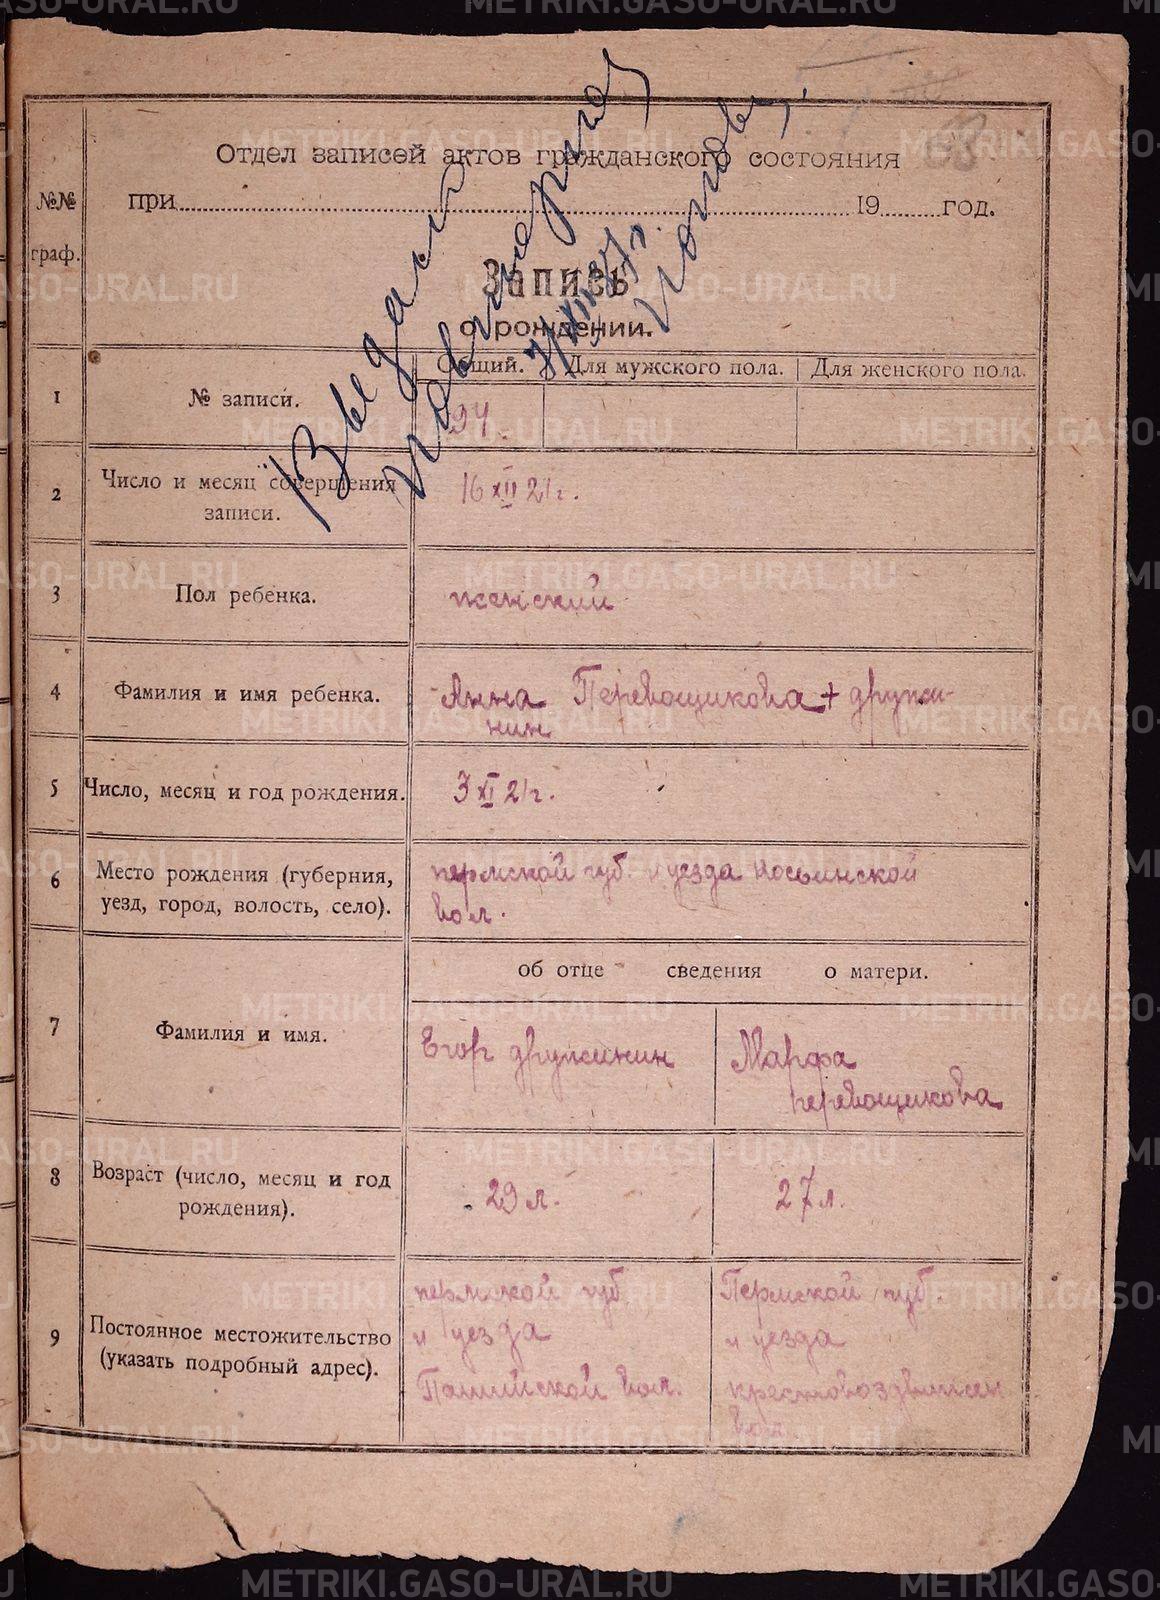 Отдел записей актов гражданского состояния
№№ граф.
при 19 год.
Запись
о рождении.
Выдан
Повторно
Общий. Для мужского пола. Для женского пола.
1 № записи. 94
2 Число и месяц совершения
записи.
16 XII 21 г.
3 Пол ребенка. женский
4 Фамилия и имя ребенка. Анна Перевощикова + дружи-
нин
5 Число, месяц и год рождения. 3 XI 21 г.
6 Место рождения (губерния,
уезд, город, волость, село).
пермской губ. и уезда
вол.
об отце сведения о матери.
7 Фамилия и имя. Егор дружинин Марфа
перевощикова
8 Возраст (число, месяц и год
рождения).
29 л. 27 л.
9 Постоянное местожительство
(указать подробный адрес).
пермской губ.
и уезда
вол.
Пермской губ.
и уезда
крестовоздвижен
вол.
METRIKI.GASO-URAL.RU